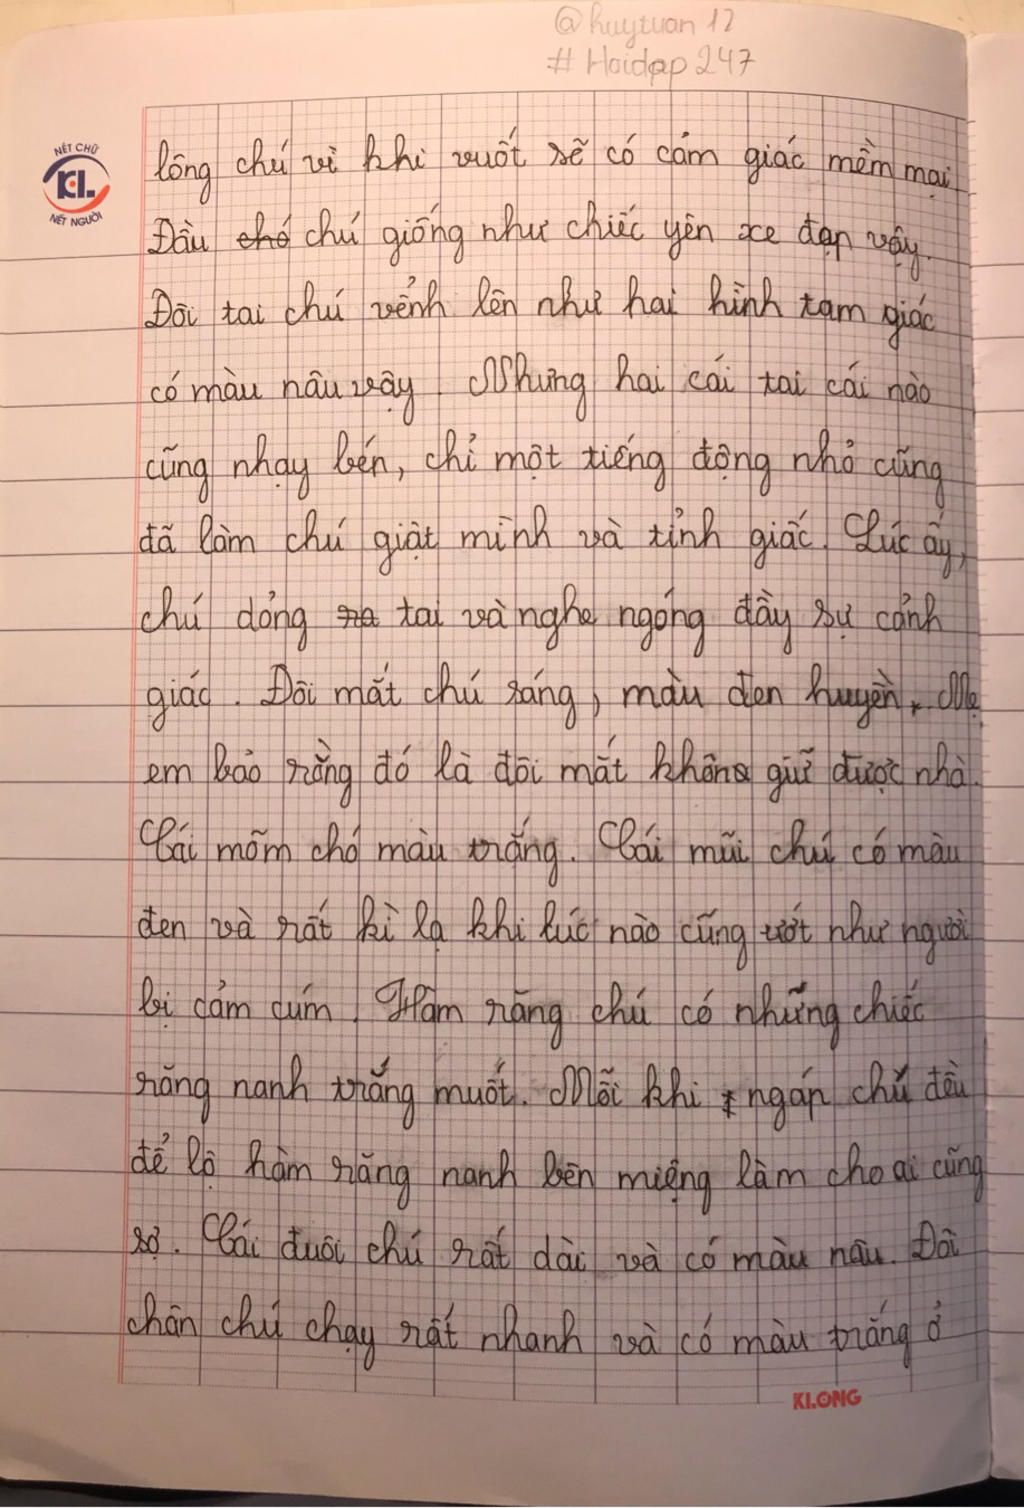 @huytuan12
# Hoidap247
NÉT CHỮ
KL
NẾT NGƯỜI
lông chú vì khi vuốt sẽ có cảm giác mềm mại
Đầu chó chú giống như chiếc yên xe đạp vậy.
Đôi tai chú vểnh lên như hai hình tam giác
có màu nâu vậy. Nhưng hai cái tai cái nào
cũng nhạy bén, chỉ một tiếng động nhỏ cũng
đã làm chú giật mình và tỉnh giấc. Lúc ấy,
chú dỏng ra tai và nghe ngóng đầy sự cảnh
giác. Đôi mắt chú sáng, màu đen huyền. Mẹ
em bảo rằng đó là đôi mắt không giữ được nhà.
Cái mõm chó màu trắng. Cái mũi chú có màu
đen và rất kì lạ khi lúc nào cũng ướt như người
bị cảm cúm. Hàm răng chú có những chiếc
răng nanh trắng muốt. Mỗi khi ngáp chú đều
để lộ hàm răng nanh bên miệng làm cho ai cũng
sợ. Cái đuôi chú rất dài và có màu nâu. Đôi
chân chú chạy rất nhanh và có màu trắng ở
KLONG